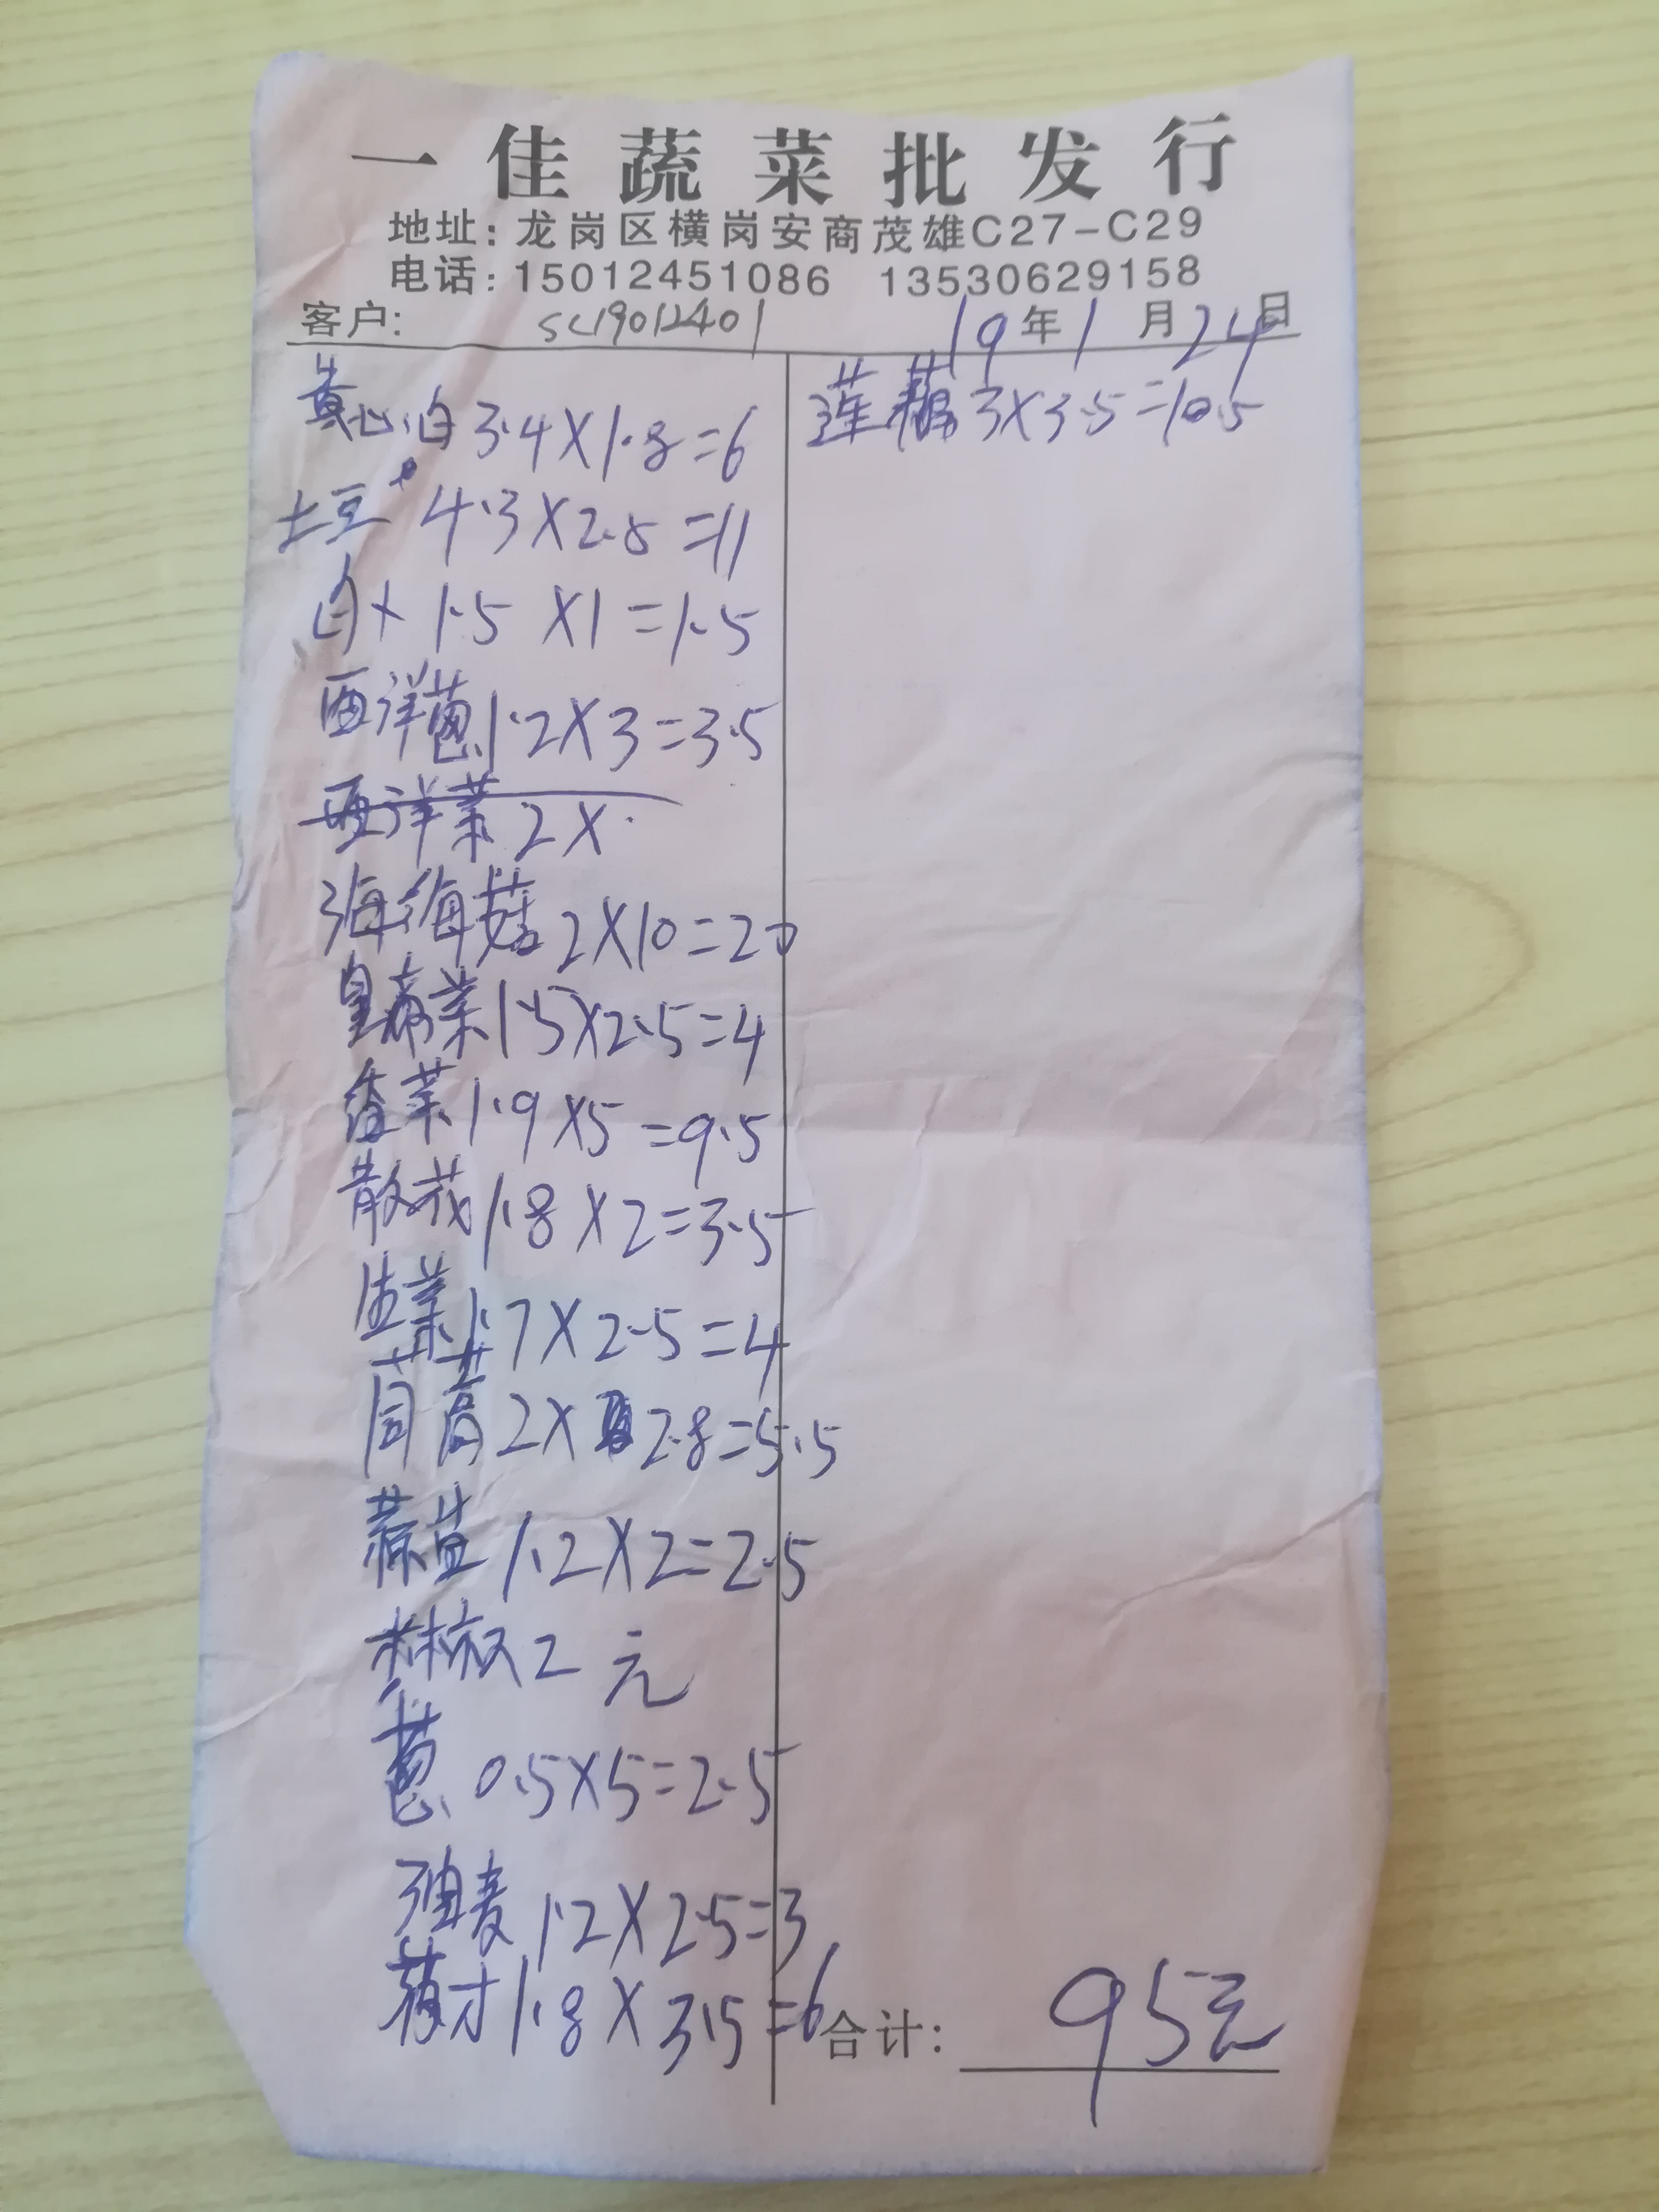 一佳蔬菜批发行
地址:龙岗区横岗安商茂雄C27-C29
电话:15012451086 13530629158
客户: SC19012401 19年1月24日
黄心白 3.4X1.8=6
土豆 4.3X2.5=11
白卜 1.5 X1=1.5
西洋葱 1.2X3=3.5
西洋菜 2X
海鲜菇 2X10=20
皇帝菜 1.5X2.5=4
香菜 1.9X5=9.5
散花 1.8X2=3.5
生菜 1.7X2.5=4
茼蒿 2X 2.8=5.5
1.2X2=2.5
椒 2元
葱 0.5X5=2.5
油麦 1.2X2.5=3
1.8X3.5=6
莲藕 3X3.5=10.5
合计: 95元